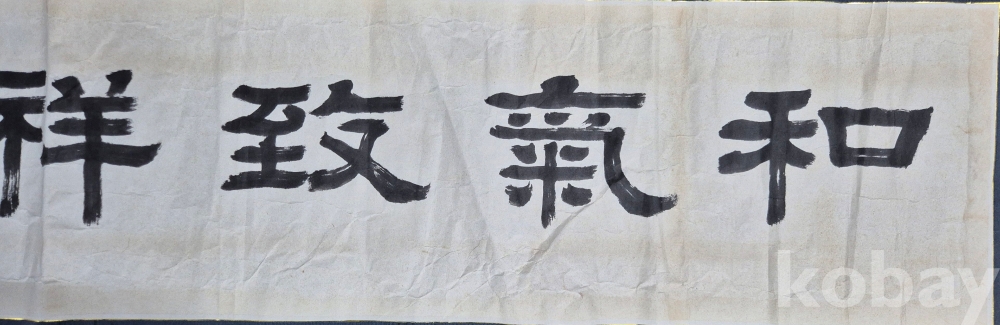 和氣致祥
kobay